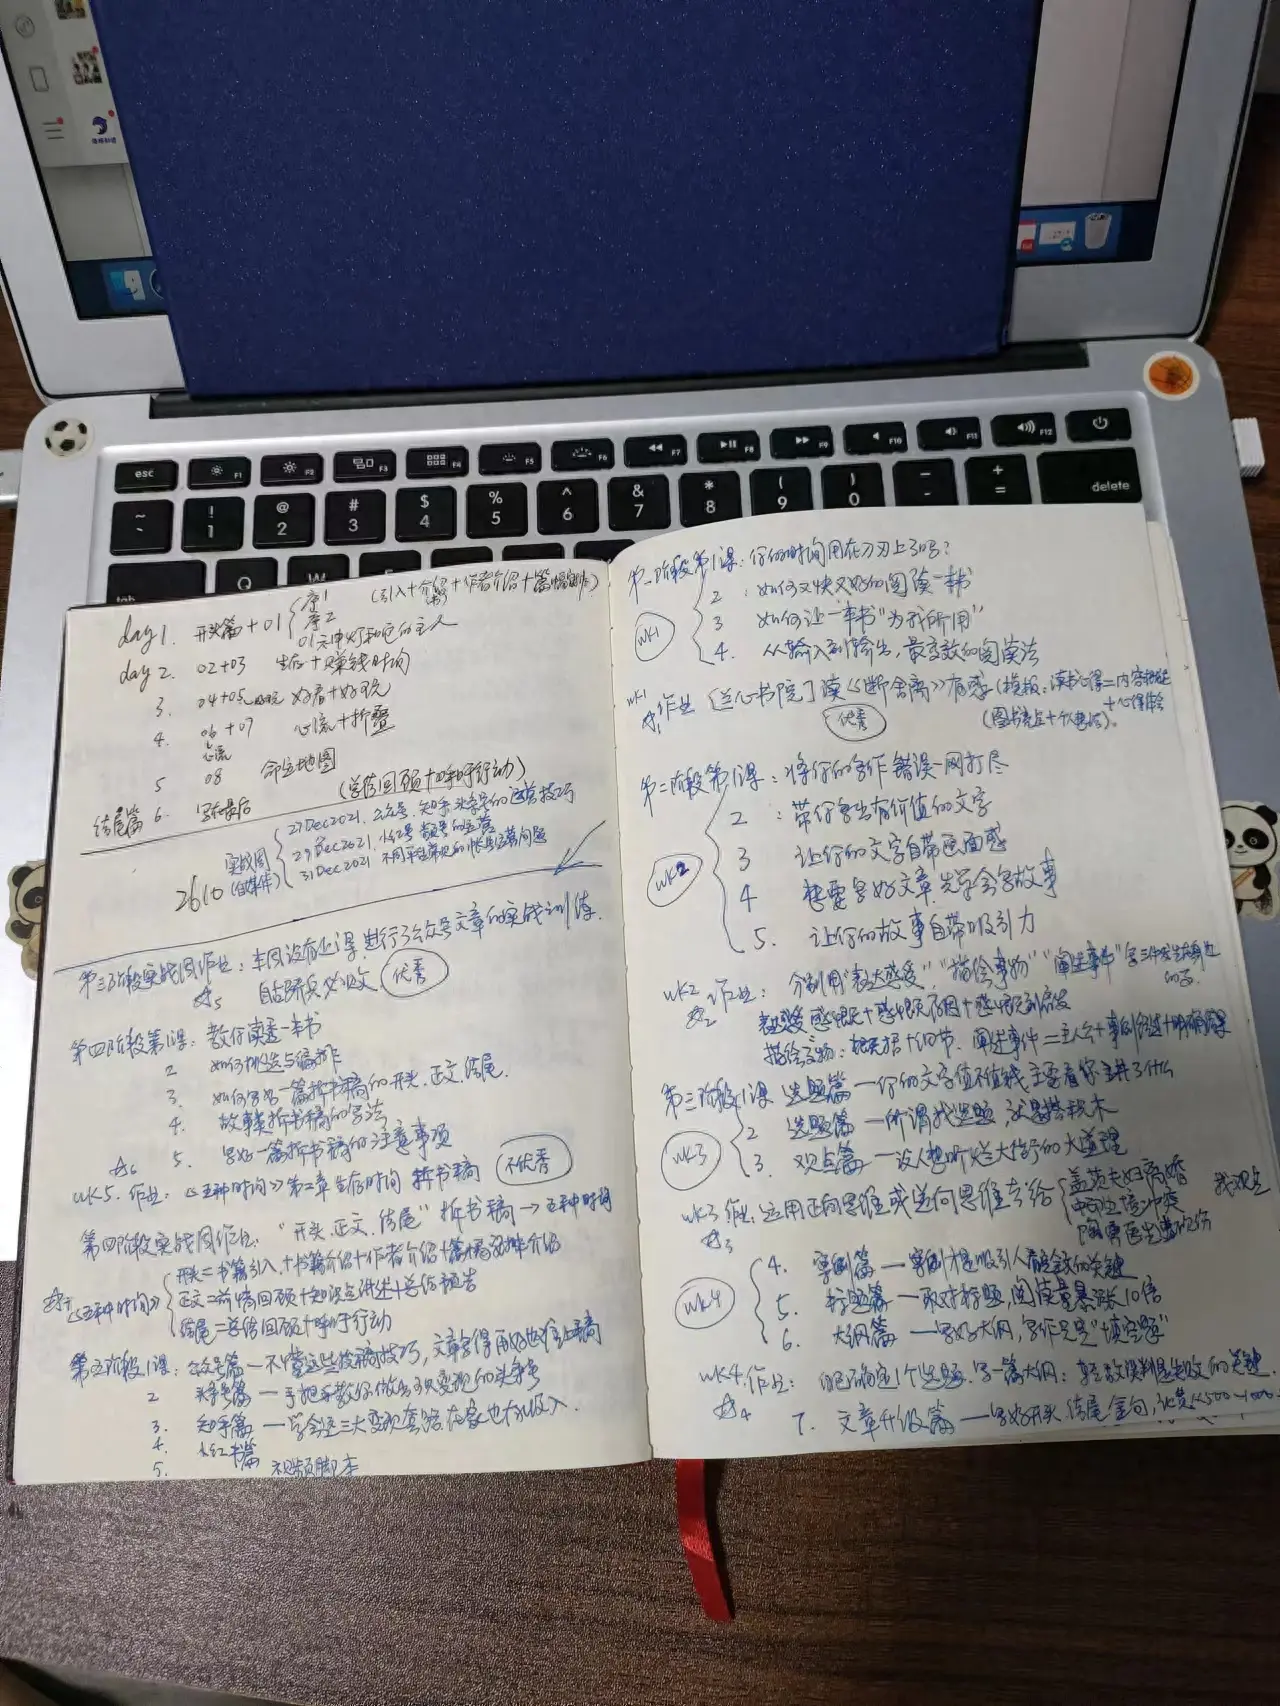 esc F1 F2 F3 F4 F5 F6 F7 F8 F9 F10 F11 F12
~ ! @ # $ % ^ & * ( ) - +
1 2 3 4 5 6 7 8 9 0 - = delete
tab Q W
day 1. 开头篇 + 01 序1 (引入+介绍+作者介绍+篇幅
序2
01 主人
day 2. 02+03 生存+赚钱时间
3. 04+05 好看+好玩
4. 06+07 心流+折叠
心流
5 08 命运地图
结尾篇 6. 写在最后 (总结回顾+呼吁行动)
实战周 27 Dec 2021, 公众号, 知乎, 头条号的运营技巧
2610 (自媒体) 29 Dec 2021, 小红书
31 Dec 2021 不同平台常见的 运营问题
第三阶段实战周作业: 本周没有上课, 进行了公众号文章的实战训练.
☆5 优秀
第四阶段第1课: 教你读透一本书
2 如何挑选与编排
3. 如何写好一篇拆书稿的开头.正文.结尾.
4. 故事类拆书稿的写法
☆6 5. 写好一篇拆书稿的注意事项
WK5. 作业: 《五种时间》第二章生存时间 拆书稿 不优秀
第四阶段实战周作业: “开头.正文.结尾” 拆书稿→五种时间
开头=书籍引入+书籍介绍+作者介绍+篇幅安排介绍
☆7 《五种时间》 正文=前情回顾+知识点讲述+总结预告
结尾=总结回顾+呼吁行动
第五阶段1课: 公众号篇—不懂这些投稿技巧, 文章写得再好也难上稿
2 头条号篇—手把手教你做出可以变现的头条号
3. 知乎篇—学会这三大变现套路 在家也有收入.
4. 小红书篇
5. 视频脚本
第一阶段第1课: 你的时间用在刀刃上了吗?
2: 如何又快又好的阅读一本书
WK1 3 如何让一本书“为我所用”
4. 从输入到输出, 最高效的阅读法
WK1
☆1 作业 读《断舍离》有感 (模板: 读书心得=内容概括
+心得体会
优秀
第二阶段第1课: 将你的写作错误一网打尽
2: 带你写出有价值的文字
WK2 3 让你的文字自带画面感
4 想要写好文章, 先学会写故事
5. 让你的故事自带吸引力
WK2 作业: 分别用“表达感受”,“描绘事物”“阐述事件”写三件发生在身边
☆2 的事.
描绘事物: +细节. 阐述事件=主人公+事例叙述+明确结果
第三阶段1课 选题篇—你的文字值不值钱 主要看你写了什么
2 选题篇—所谓找选题, 就是搭积木
WK3 3. 观点篇—没人想听烂大街的大道理
WK3 作业: 运用正向思维或逆向思维去给 盖茨夫妇离婚 找观点
☆3 中印边境冲突
4. 案例篇—案例才是吸引人 的关键
WK4 5. 标题篇—取对标题, 阅读量暴涨10倍
6. 大纲篇—写好大纲, 写作只是“填空题”
WK4. 作业: 自己确定1个选题. 写一篇大纲:
☆4 7. 文章升级篇—写好开头 结尾 金句,